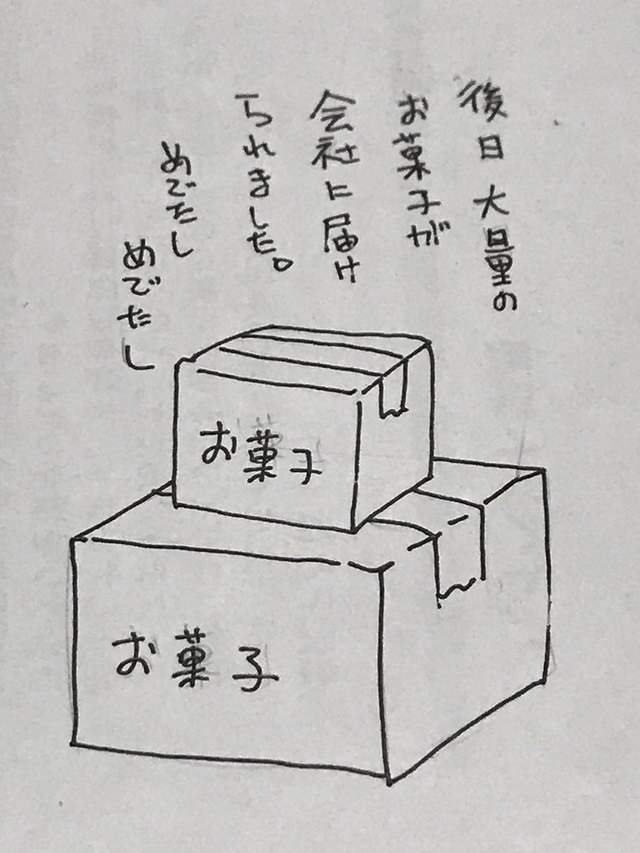 後日大量の
お菓子が
会社に届け
られました。
めでたし
めでたし
お菓子
お菓子